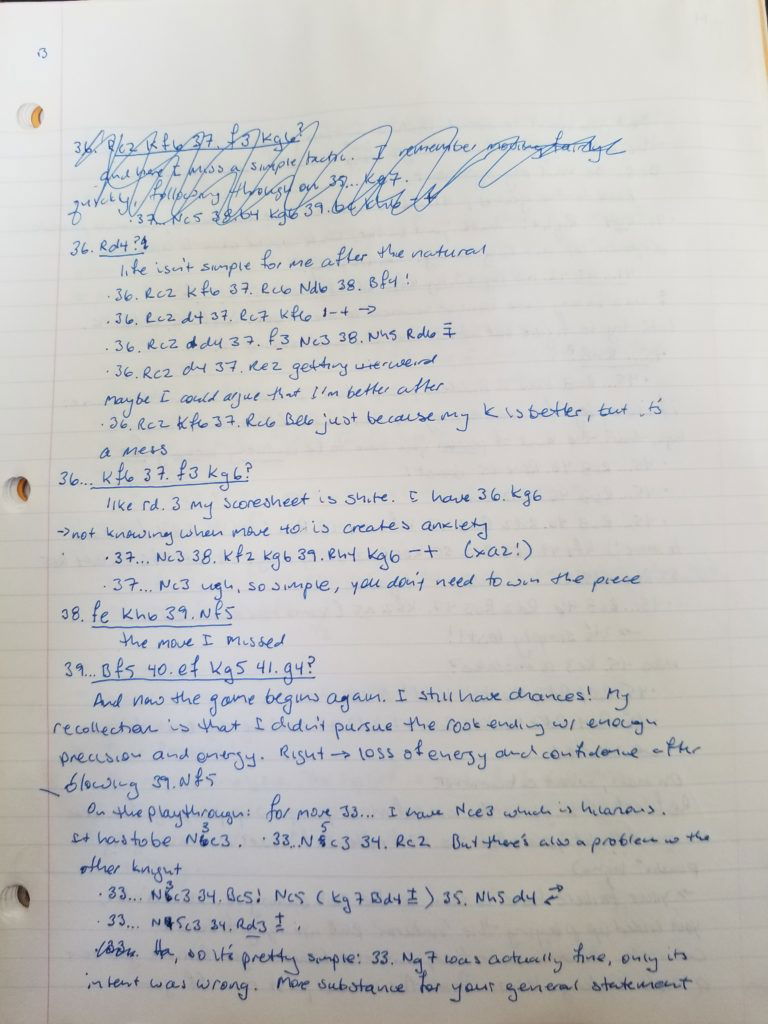 13
36. Rc2 Kf6 37. f3 Kg6?
and here I miss a simple tactic. I remember moving fairly
quickly, following through on 35... Kg7.
37... Nc5 38. b4 Kg6 39. Kh6 -+
36. Rd4?!
life isn't simple for me after the natural
· 36. Rc2 Kf6 37. Rc6 Nd6 38. Bf4!
· 36. Rc2 d4 37. Rc7 Kf6 -+ →
· 36. Rc2 d4 37. f3 Nc3 38. Nh5 Rd6 ∓
· 36. Rc2 d4 37. Re2 getting weird
maybe I could argue that I'm better after
· 36. Rc2 Kf6 37. Rc6 Be6 just because my K is better, but it's
a mess
36... Kf6 37. f3 Kg6?
like rd. 3 my scoresheet is shite. I have 36. Kg6
→ not knowing when move 40 is creates anxiety
· 37... Nc3 38. Kf2 Kg6 39. Rh4 Kg6 -+ (xa2!)
· 37... Nc3 ugh, so simple, you don't need to win the piece
38. fe Kh6 39. Nf5
the move I missed
39... Bf5 40. ef Kg5 41. g4?
And now the game begins again. I still have chances! My
recollection is that I didn't pursue the rook ending w/ enough
precision and energy. Right → loss of energy and confidence after
blowing 39. Nf5
On the playthrough: for move 33... I have Nce3 which is hilarious.
It has to be N3c3. · 33... N5c3 34. Rc2 But there's also a problem w the
other knight
· 33... N3c3 34. Bc5! Nc5 (Kg7 Bd4 ±) 35. Nh5 d4 ⇄
· 33... N5c3 34. Rd3 ±.
Ha, so it's pretty simple: 33. Ng7 was actually fine, only its
intent was wrong. More substance for your general statement